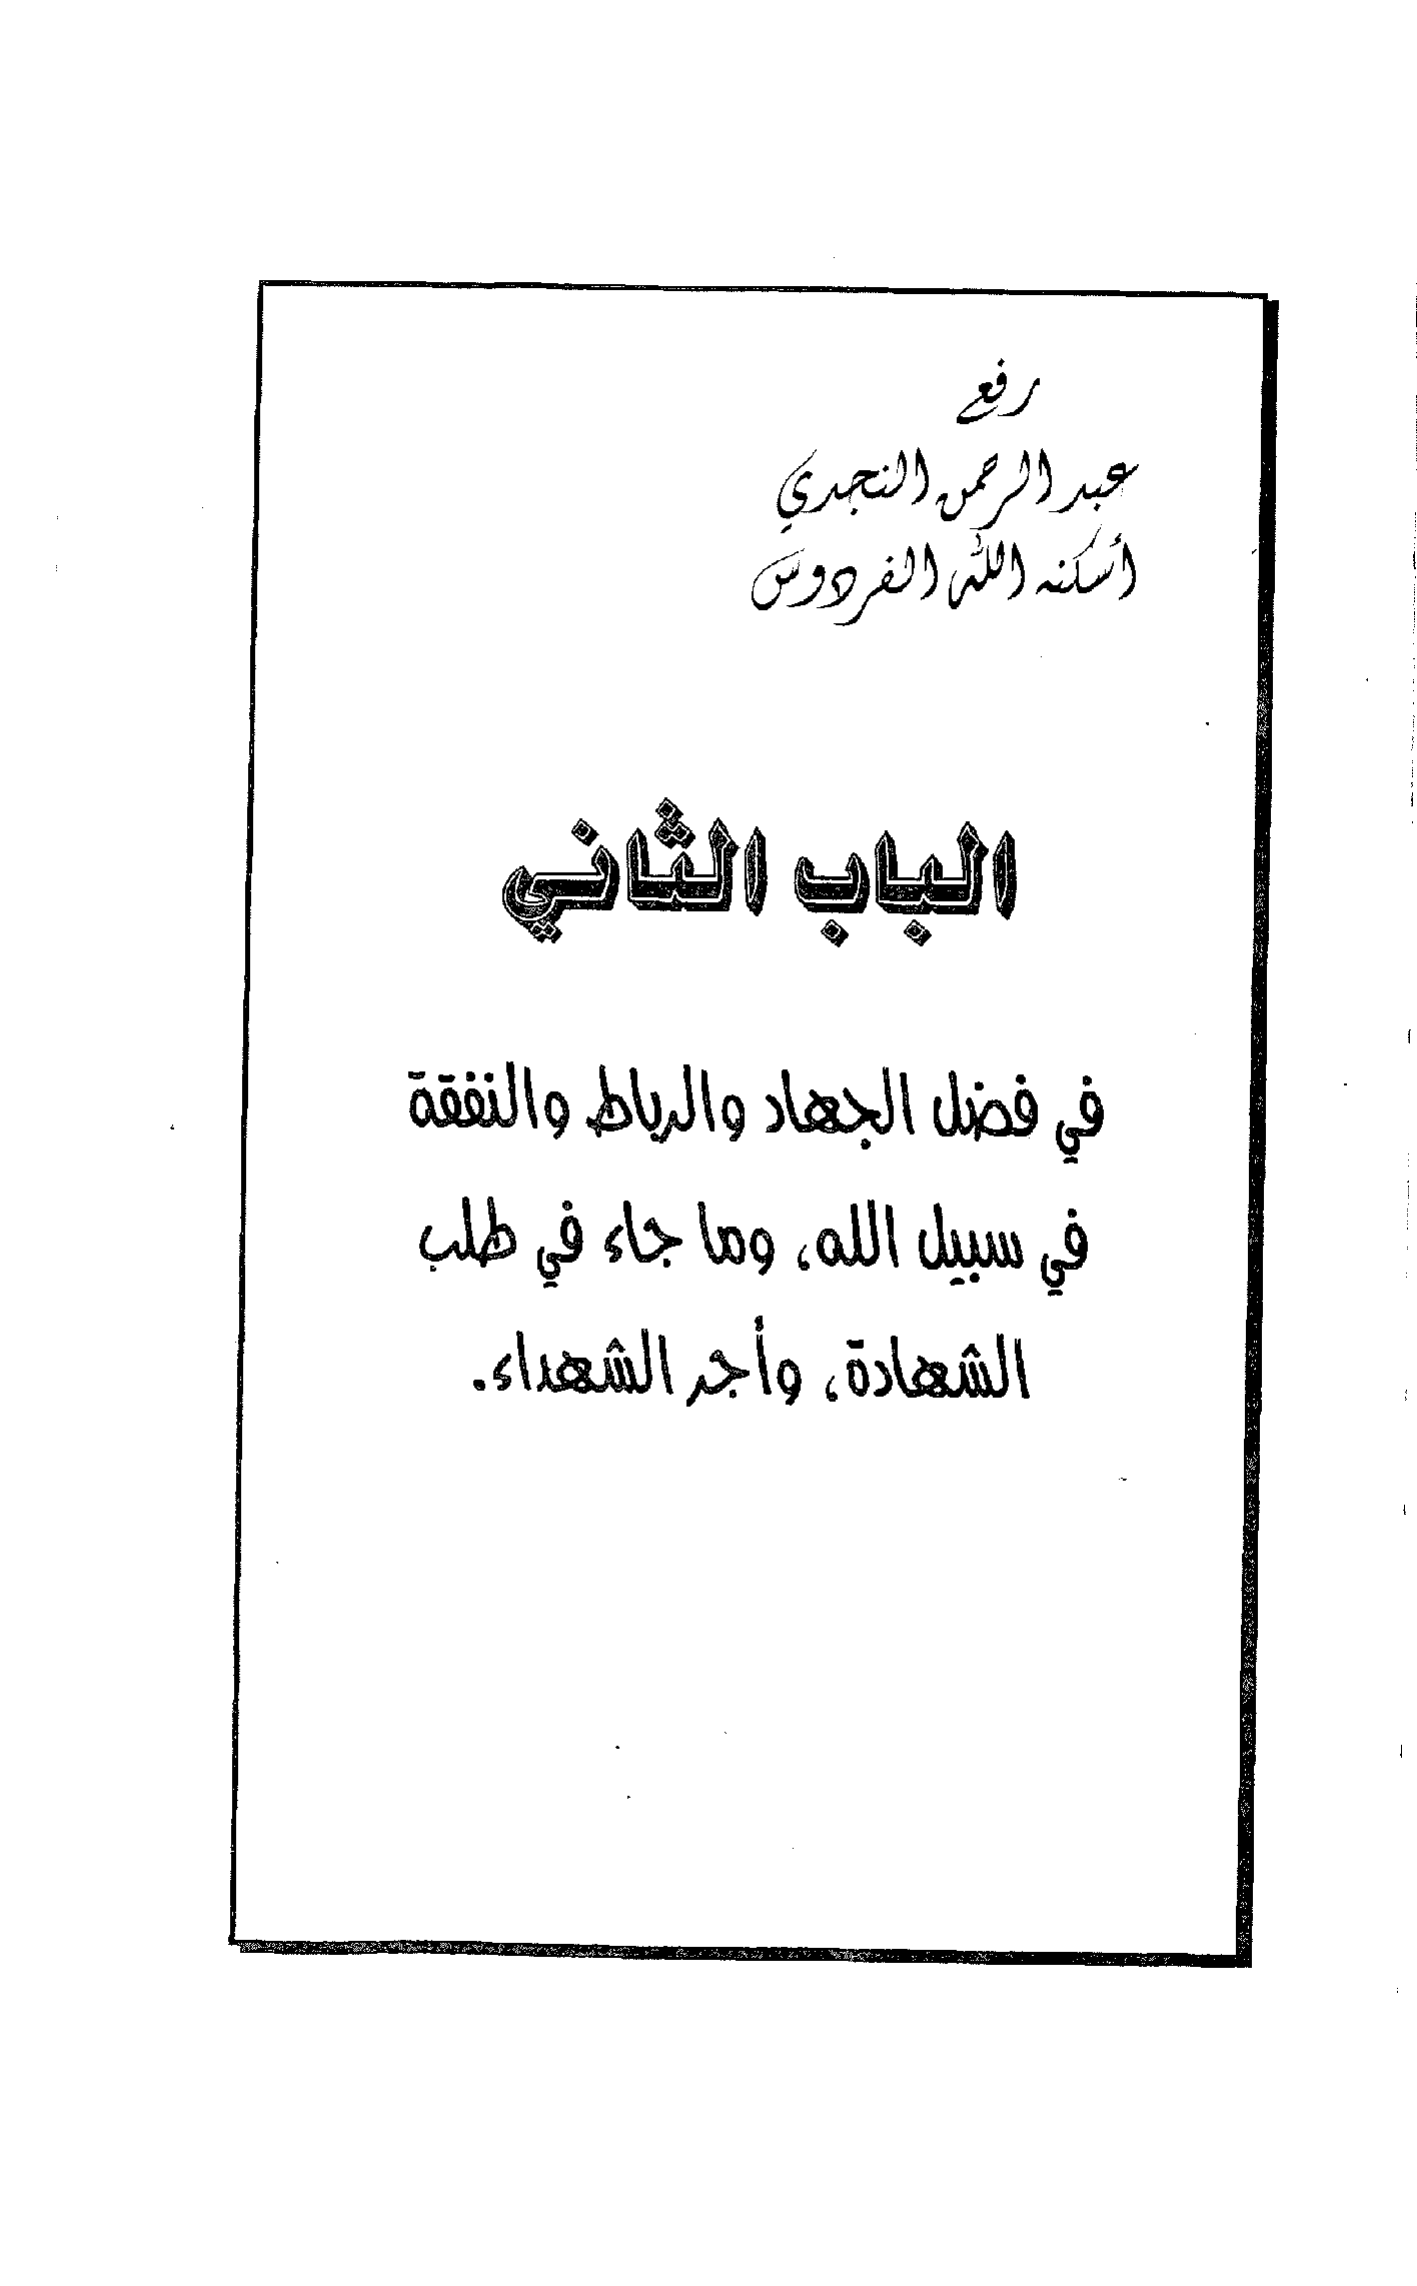 رفع
عبد الرحمن النجدي
أسكنه الله الفردوس
الباب الثاني
في فضل الجهاد والرباط والنفقة
في سبيل الله، وما جاء في طلب
الشهادة، وأجر الشهداء.